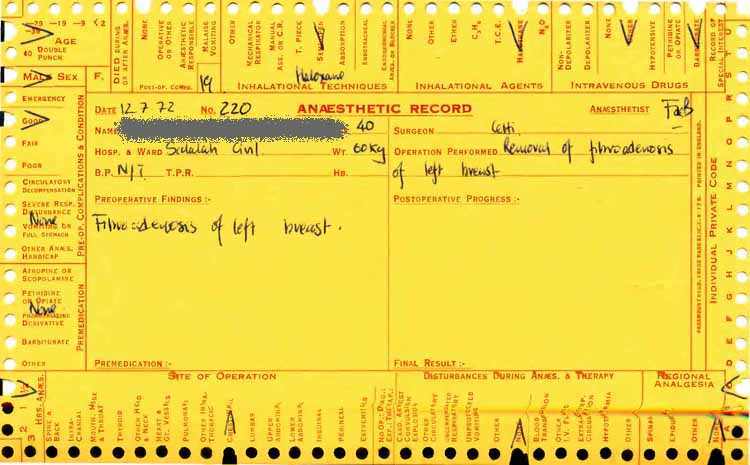 -79 -19 -9 <2
-39
40 AGE
DOUBLE
PUNCH
MALE SEX F.
DIED DURING
OR AFTER ANÆS.
NONE
OPERATIVE
OR OTHER
ANÆSTHETIC
RESPONSIBLE
MALAISE
VOMITING
OTHER
POST-OP. COMPS.
19
MECHANICAL
RESPIRATOR
MAN.
ASS. OR C.R.
T. PIECE
ABSORPTION
ENDOTRACHEAL
Haloxane
INHALATIONAL TECHNIQUES
NONE
OTHER
ETHER
T.C.E.
N₂O
INHALATIONAL AGENTS
NON-
DEPOLARIZER
DEPOLARIZER
OTHER
HYPOTENSIVE
PETHIDINE
OR OPIATE
BARBITURATE
INTRAVENOUS DRUGS
RECORD OF
SPECIAL INTEREST
EMERGENCY
GOOD
FAIR
POOR
CIRCULATORY
DECOMPENSATION
SEVERE RESP.
DISTURBANCE
None
VOMITING OR
FULL STOMACH
OTHER ANÆS.
HANDICAP
PRE-OP. COMPLICATIONS & CONDITION
ATROPINE OR
SCOPOLAMINE
PETHIDINE
OR OPIATE
None
DERIVATIVE
BARBITURATE
OTHER
PREMEDICATION
DATE 12.7.72 NO. 220 ANÆSTHETIC RECORD ANÆSTHETIST
NAME 40 SURGEON
HOSP. & WARD Salalah Civil. WT. 60Kg OPERATION PERFORMED Removal of fibroadenosis
B.P. N/T T.P.R. HB. of left breast
PREOPERATIVE FINDINGS :- POSTOPERATIVE PROGRESS :-
Fibroadenosis of left breast.
PREMEDICATION :- FINAL RESULT :-
PRINTED IN ENGLAND.
INDIVIDUAL PRIVATE CODE
SITE OF OPERATION DISTURBANCES DURING ANÆS. & THERAPY REGIONAL
ANALGESIA
3 2 1
HRS. ANÆS.
SPINE &
BACK
INTRA-
CRANIAL
MOUTH, NOSE
& THROAT
THYROID
OTHER HEAD
& NECK
HEART &
GT. VESSELS
PULMONARY
OTHER INTRA-
THORACIC
LUMBAR
UPPER
ABDOMINAL
LOWER
ABDOMINAL
INGUINAL
PERINEAL
EXTREMITIES
CARD. ARREST
CONVULSION
EXPLOSION
OTHER
CIRCULATORY
UNEXPECTED
RESPIRATORY
UNEXPECTED
VOMITING
OTHER
BLOOD
TRANSFUSION
OTHER
I.V. FL.
HYPOTHERMIA
SPINAL
EPIDURAL
OTHER